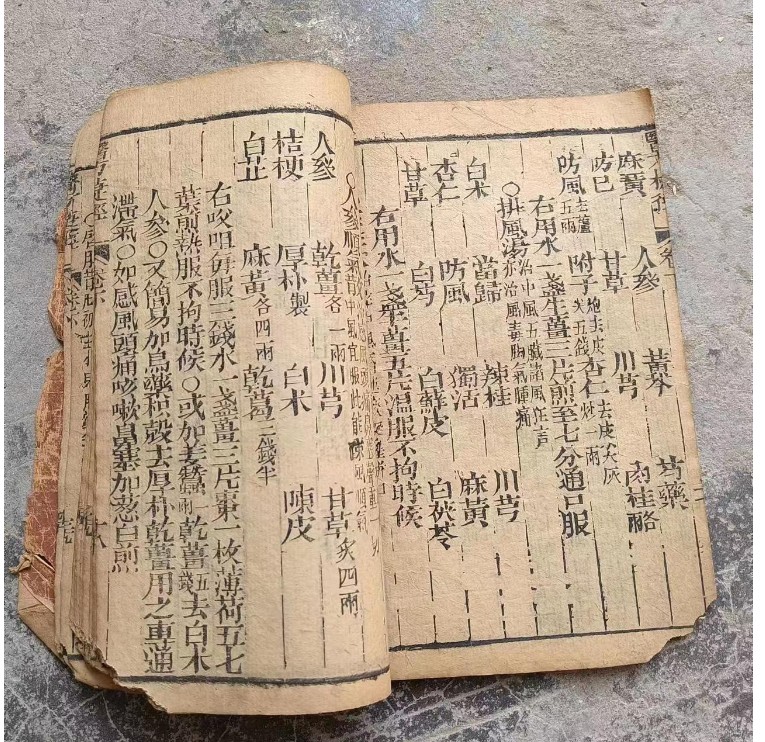 麻黃 人參 黃芩 芍藥
防巳 甘草 川芎 肉桂
防風五兩去蘆 附子炮去皮尖五錢 杏仁去皮尖炒一兩
右用水一盞生薑三片煎至七分通口服
○排風湯治中風五臟諸風狂言亦治風毒脚氣腫痛
白术 當歸 辣桂 川芎
杏仁 防風 獨活 麻黃
甘草 白芍 白蘚皮 白茯苓
右用水一盞生薑五片溫服不拘時候
○人參順氣散
人參 乾薑各一兩 川芎 甘草炙四兩
桔梗 厚朴製 白术 陳皮
白芷 麻黃各四兩 乾葛三錢半
右㕮咀每服三錢水一盞薑三片棗一枚薄荷五七
葉煎熱服不拘時候○或加羌蠶一兩乾薑五錢去白术
人參○又簡易加烏藥和殼去厚朴乾薑用之專通
滯氣○如感風頭痛咳嗽鼻塞加葱白煎
醫方捷徑 卷下